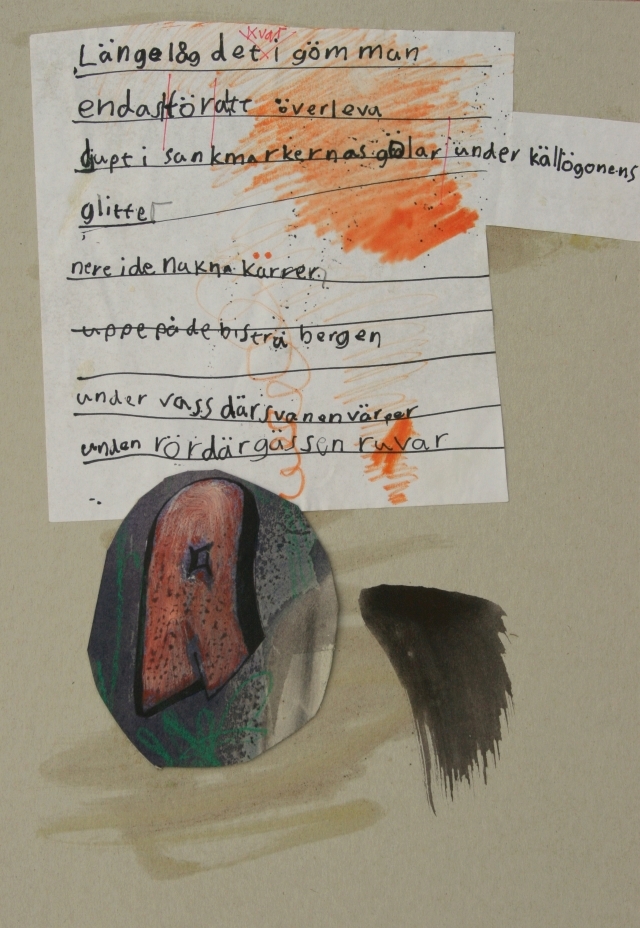 kvar
Länge låg det i göm man
endastföratt överleva
djupt i sankmarkernas gölar under källögonens
glitter
nere i de nakna kärren
uppe på de bistra bergen
under vass där svanen värper
under rör där gässen ruvar